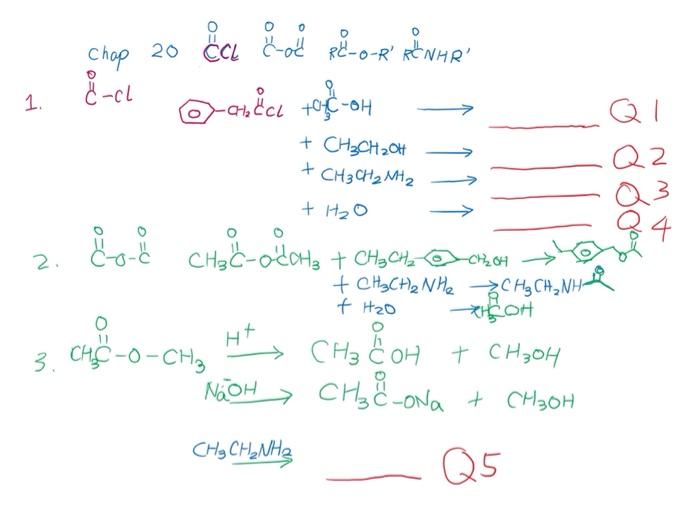 Chap 20 O || CCl O || C-O-C || O O || RC-O-R' O || RCNHR'
1. O || C-Cl
-CH2CCl || O + CH3C-OH || O → ______ Q1
+ CH3CH2OH → ______ Q2
+ CH3CH2NH2 → ______ Q3
+ H2O → ______ Q4
2. O || C-O-C || O CH3C-OCCH3 || O || O + CH3CH2--CH2OH → O O
+ CH3CH2NH2 → CH3CH2NH O
+ H2O → CH3COH || O
3. CH3C-O-CH3 || O H+ → CH3COH || O + CH3OH
NaOH → CH3C-ONa || O + CH3OH
CH3CH2NH2 → ______ Q5